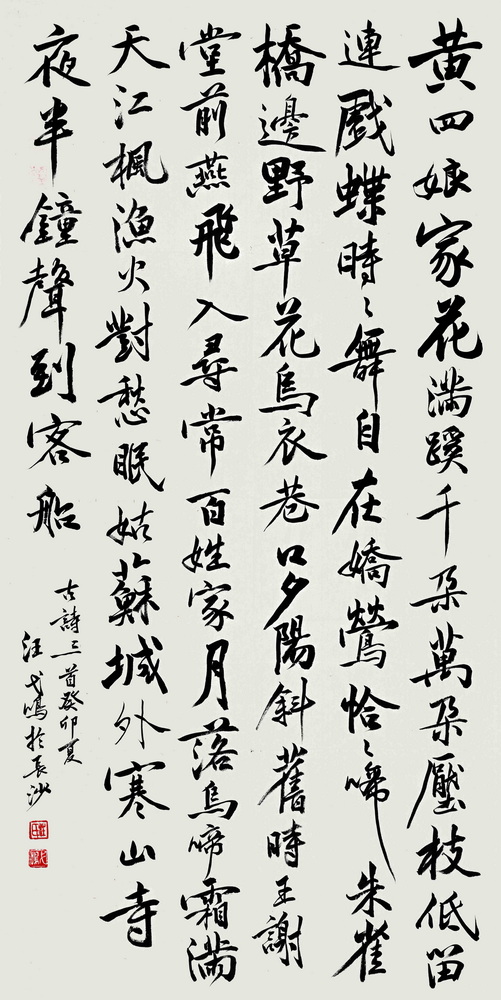 黄四娘家花滿蹊千朵萬朵壓枝低留
連戲蝶時〻舞自在嬌鶯恰〻啼朱雀
橋邊野草花烏衣巷口夕陽斜舊時王謝
堂前燕飛入尋常百姓家月落烏啼霜滿
天江楓漁火對愁眠姑蘇城外寒山寺
夜半鐘聲到客船
古詩三首癸卯夏
汪弋鳴於長沙